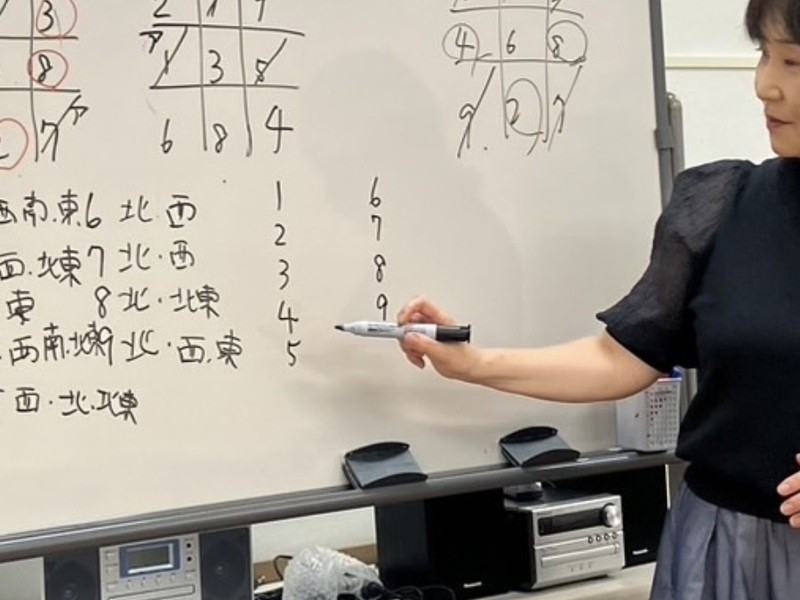 3
8 ア 1 3 5 4 6 8
7 ア 6 8 4 9 2 7
西南.東6 北.西 1 6
西.北東7 北.西 2 7
東 8 北.北東 3 8
西南.北東9 北.西.東 4 9
西.北.北東 5
Panasonic
Panasonic